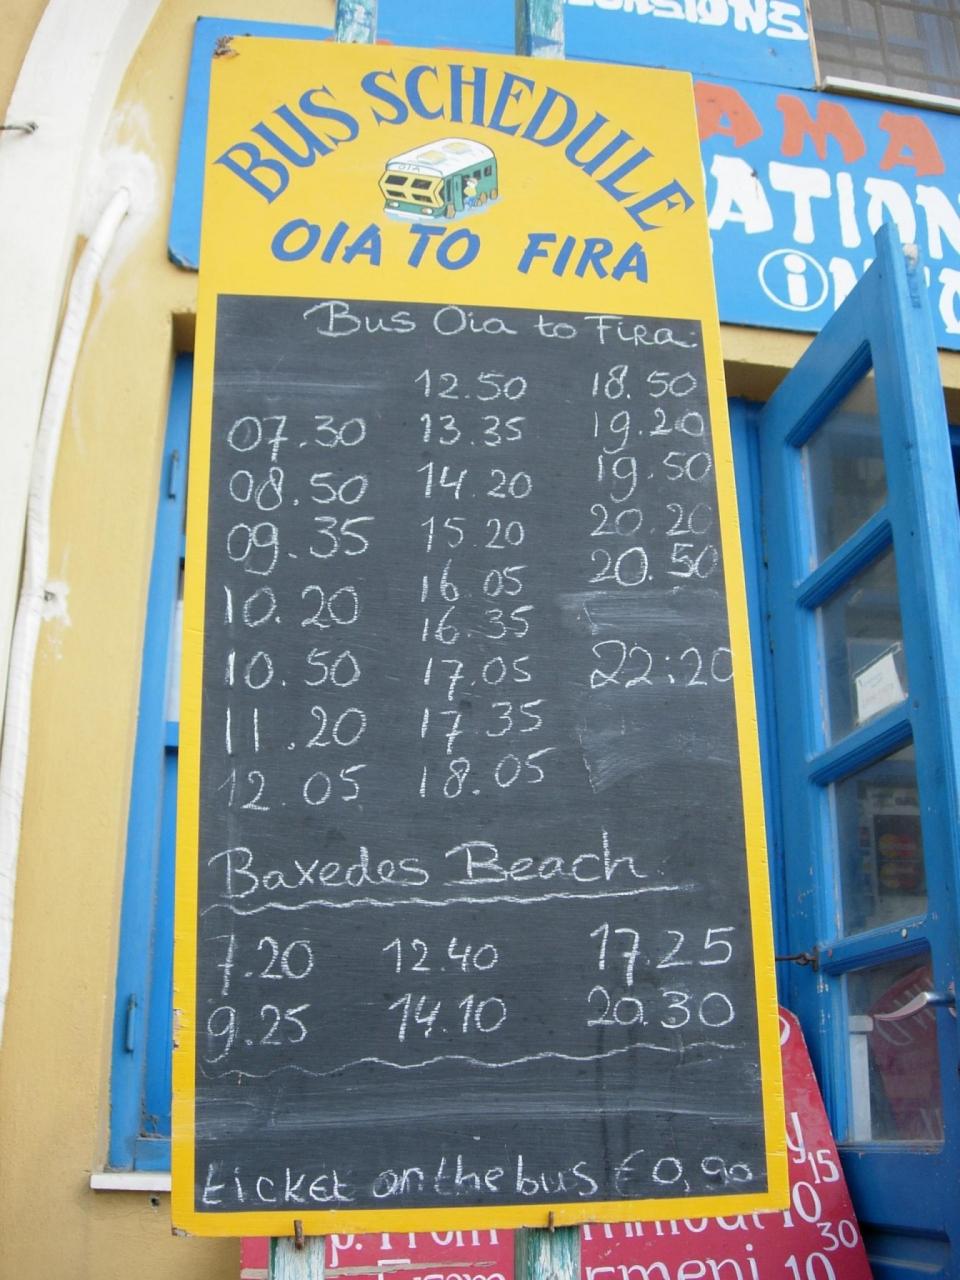 BUS SCHEDULE
OIA
OIA TO FIRA
Bus Oia to Fira
12.50 18.50
07.30 13.35 19.20
08.50 14.20 19.50
09.35 15.20 20.20
16.05 20.50
10.20 16.35
10.50 17.05 22:20
11.20 17.35
12.05 18.05
Baxedes Beach
7.20 12.40 17.25
9.25 14.10 20.30
ticket on the bus € 0,90
AMA
ATION
i
15
p. From 10
30
From 10